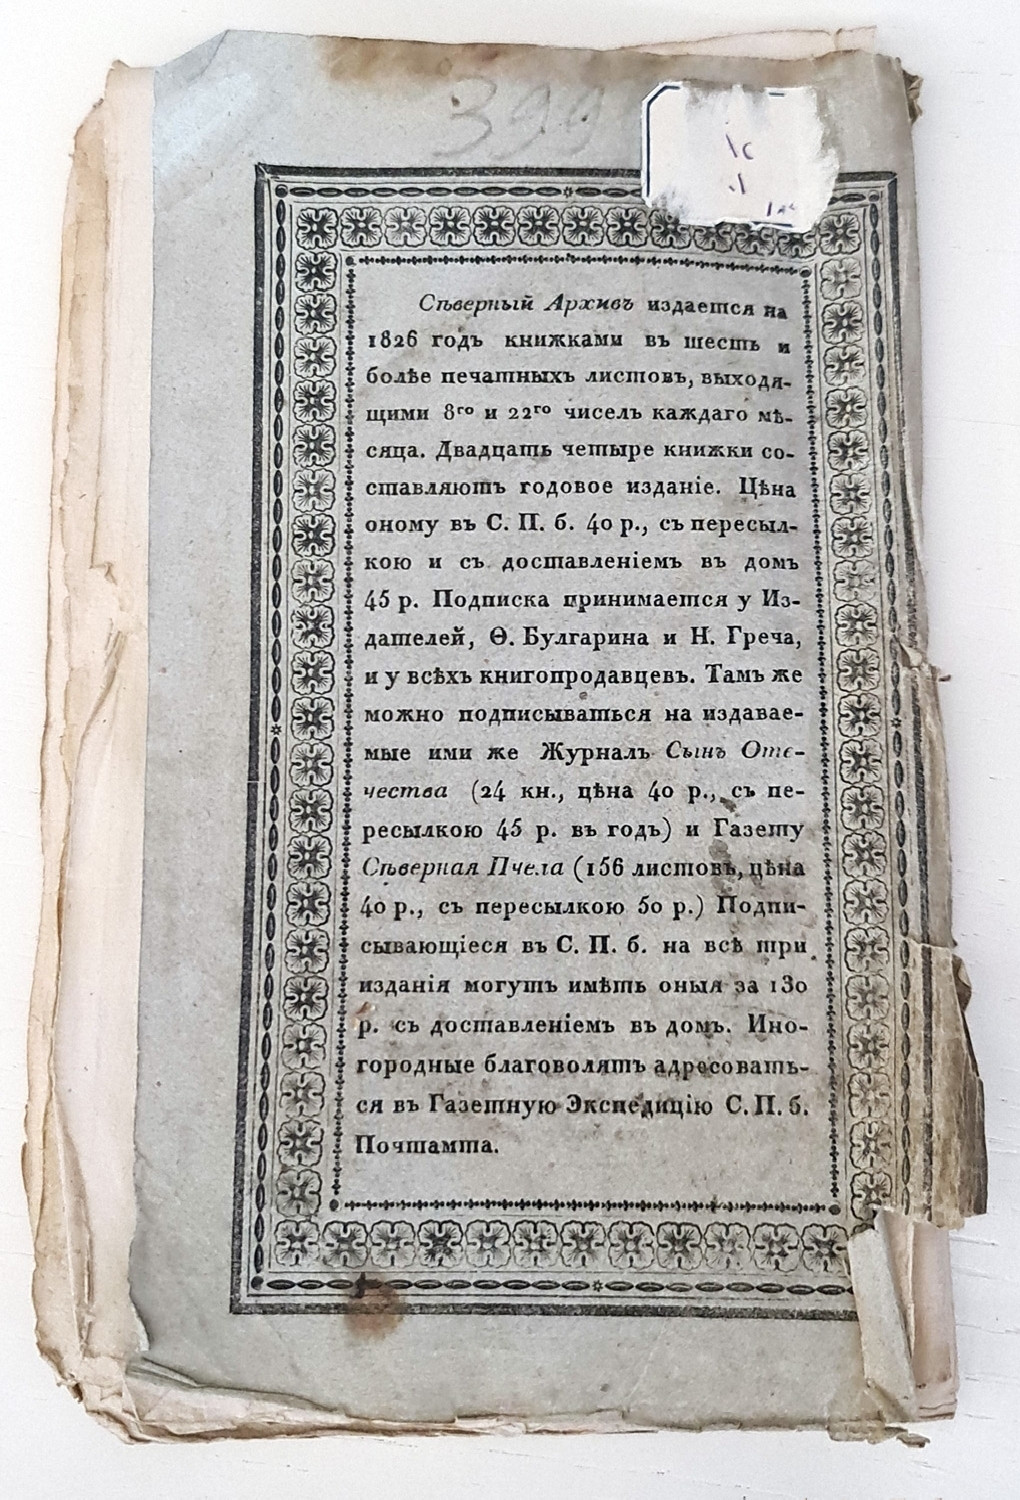 399
Сѣверный Архивъ издается на
1826 годъ книжками въ шесть и
болѣе печатныхъ листовъ, выходя-
щими 8го и 22го чиселъ каждаго мѣ-
сяца. Двадцать четыре книжки со-
ставляютъ годовое изданіе. Цѣна
оному въ С. П. б. 40 р., съ пересыл-
кою и съ доставленіемъ въ домъ
45 р. Подписка принимается у Из-
дателей, Ѳ. Булгарина и Н. Греча,
и у всѣхъ книгопродавцевъ. Тамъ же
можно подписываться на издавае-
мые ими же Журналъ Сынъ Оте-
чества (24 кн., цѣна 40 р., съ пе-
ресылкою 45 р. въ годъ) и Газету
Сѣверная Пчела (156 листовъ, цѣна
40 р., съ пересылкою 50 р.) Подпи-
сывающіеся въ С. П. б. на всѣ три
изданія могутъ имѣть оныя за 130
р. съ доставленіемъ въ домъ. Ино-
городные благоволятъ адресовать-
ся въ Газетную Экспедицію С. П. б.
Почтамта.